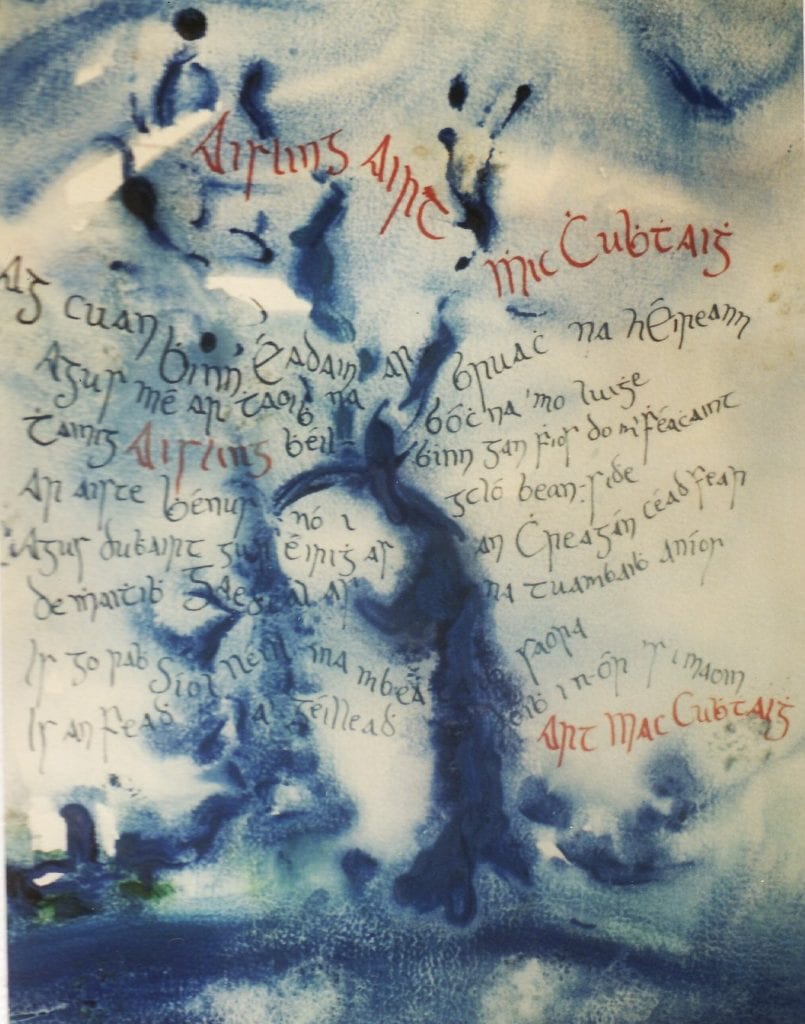 Aisling Airt
Ṁic Ċuḃṫaiġ
Ag cuan Ḃinn Éadain ar bruaċ na hÉireann
Agus mé ar ṫaoiḃ na bóċna 'mo luiġe
Ṫainig Aisling béil-ḃinn gan ḟios do m' ḟéaċaint
Ar aiste Bénus nó i gcló bean-side
Agus duḃairt gur éiriġ ar an Ċreagán céad fear
de ṁaiṫiḃ Gaeḋeal ar na tuambaiḃ aníos
Is go raḃ Síol Néill ina saora
Is an a' géilleaḋ i n-ór 's i maoin
Art Mac Cuḃṫaiġ